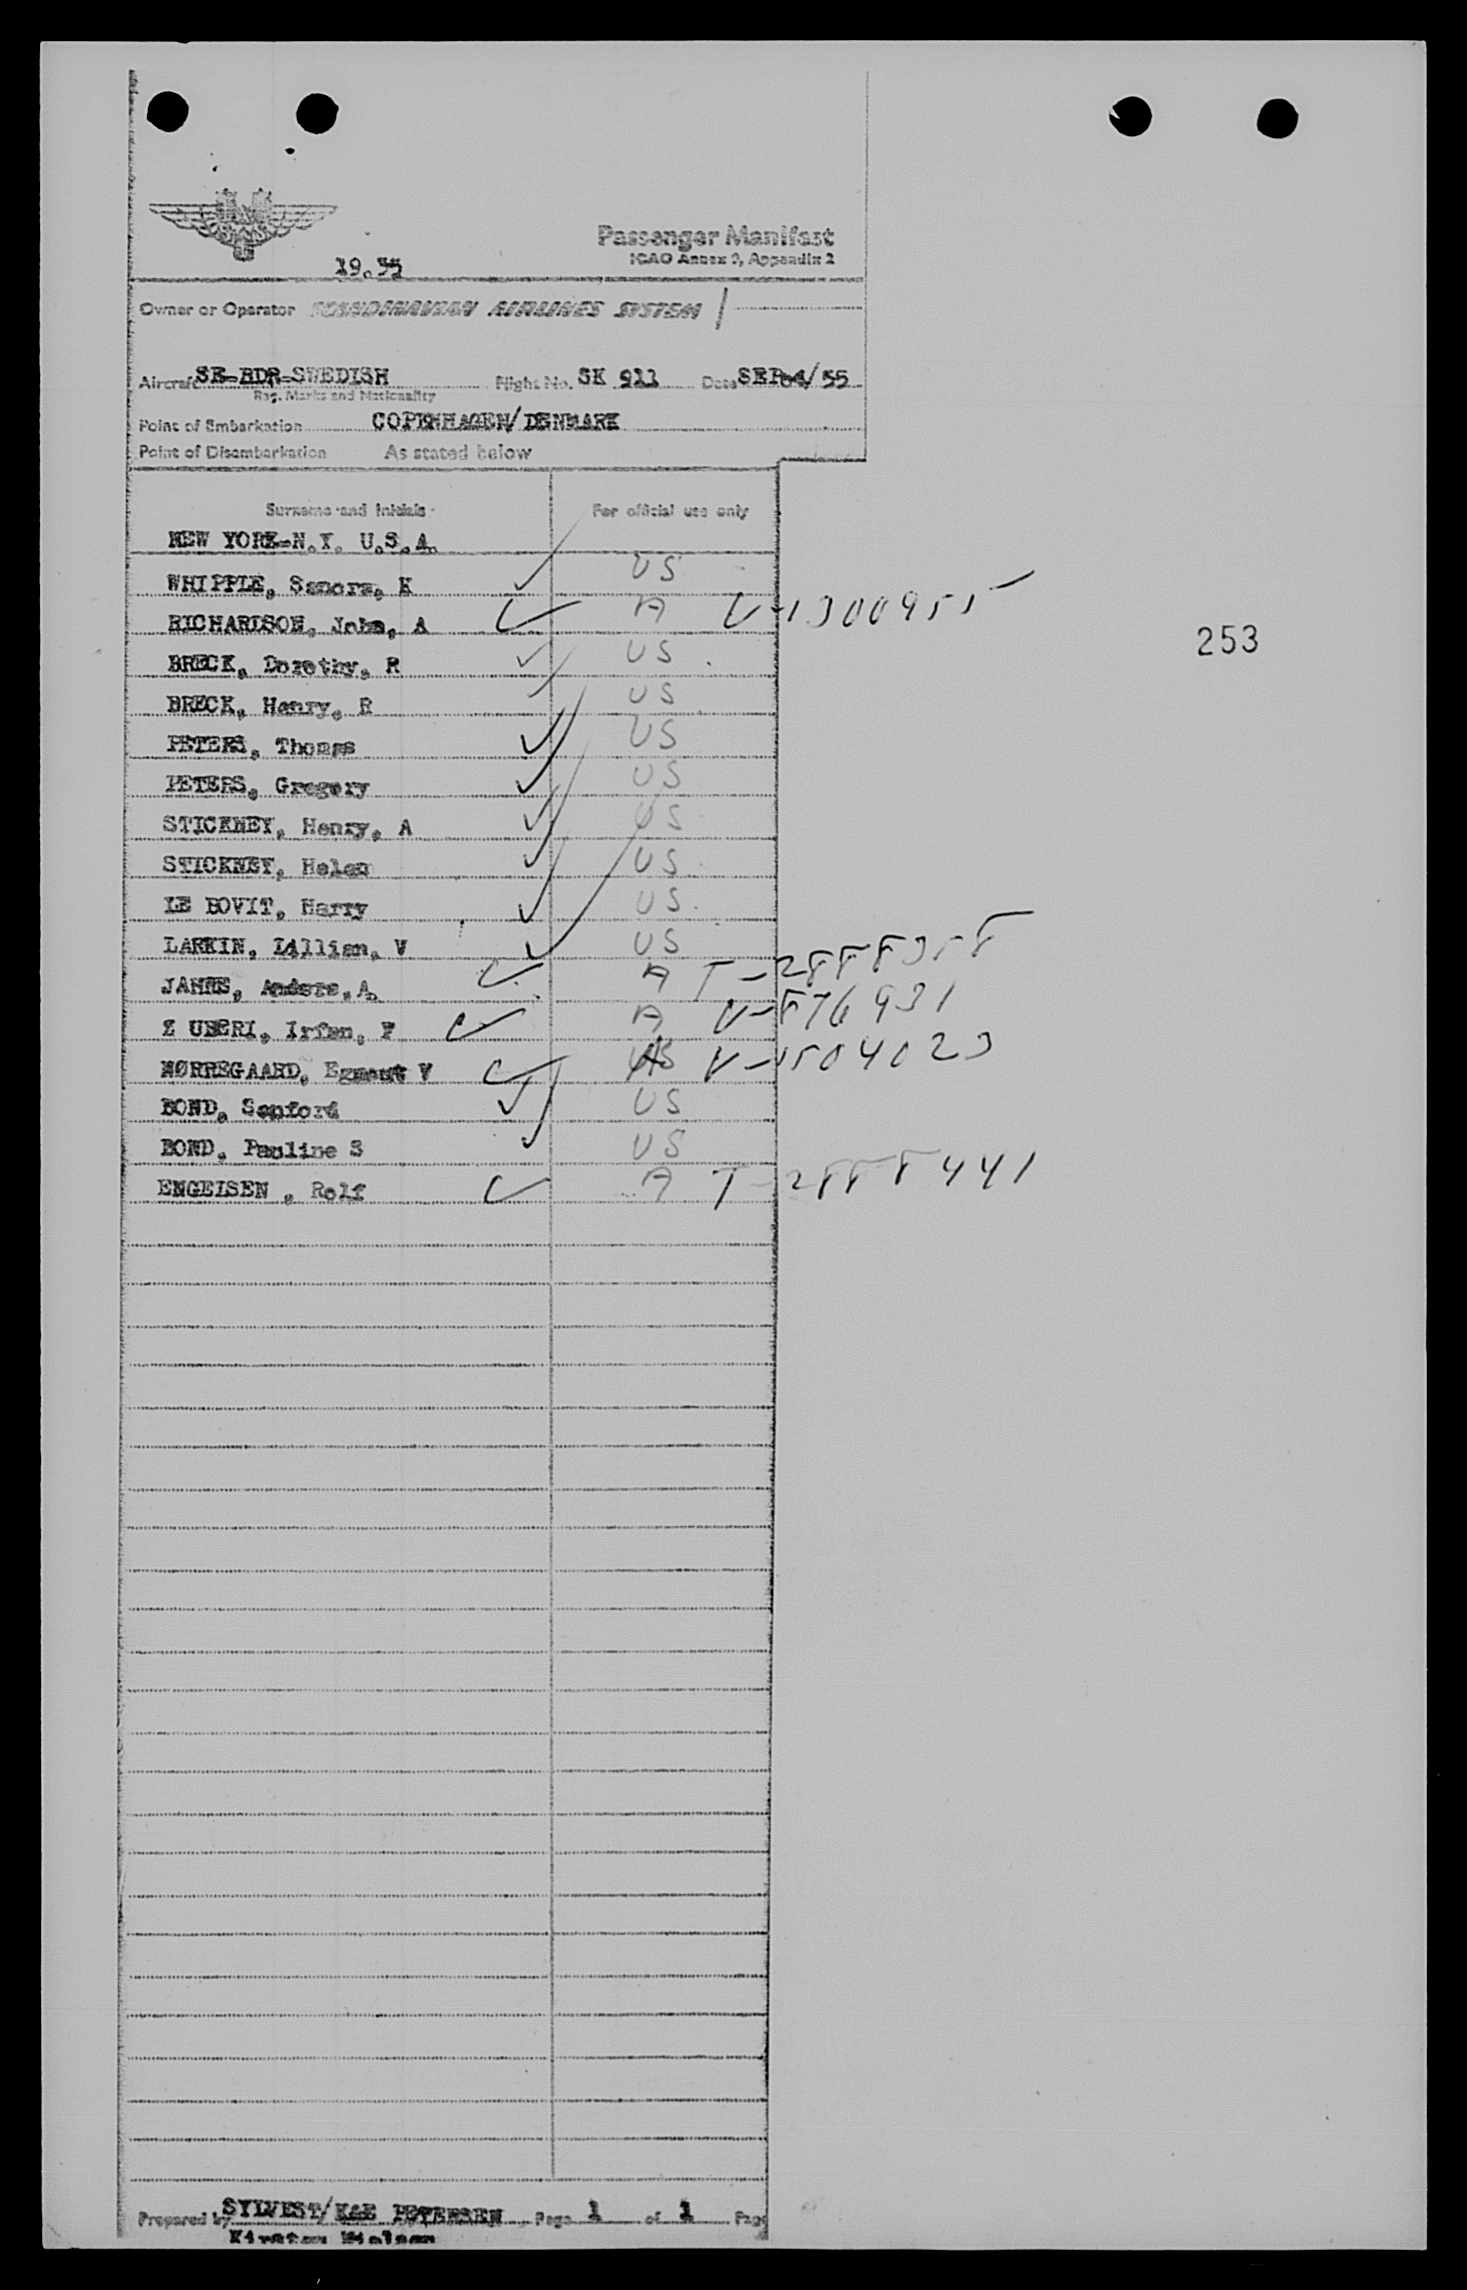 Passenger Manifest
ICAO Annex 9, Appendix 2
19.55
Owner or Operator SCANDINAVIAN AIRLINES SYSTEM
Aircraft SE-BDR-SWEDISH Flight No. SK 911 Date SEP 04/55
Reg. Marks and Nationality
Point of Embarkation COPENHAGEN/DENMARK
Point of Disembarkation As stated below
Surname and Initials For official use only
NEW YORK-N.Y. U.S.A.
WHIPPLE, Sanora, K US
RICHARDSON, John, A A V-1300955
253
BRECK, Dorothy, R US
BRECK, Henry, R US
PETERS, Thomas US
PETERS, Gregory US
STICKNEY, Henry, A US
STICKNEY, Helen US
LE BOVIT, Harry US
LARKIN, Lillian, V US
JAHRE, Anders, A. A T-2888358
Z UBERI, Irfan, F A V-876931
NØRREGAARD, Egmont V A V-1504023
BOND, Sanford US
BOND, Pauline S US
ENGELSEN, Rolf A T-2888441
Prepared by SYLVEST/KAE PETERSEN Page 1 of 1 Page
Kirsten Nielsen